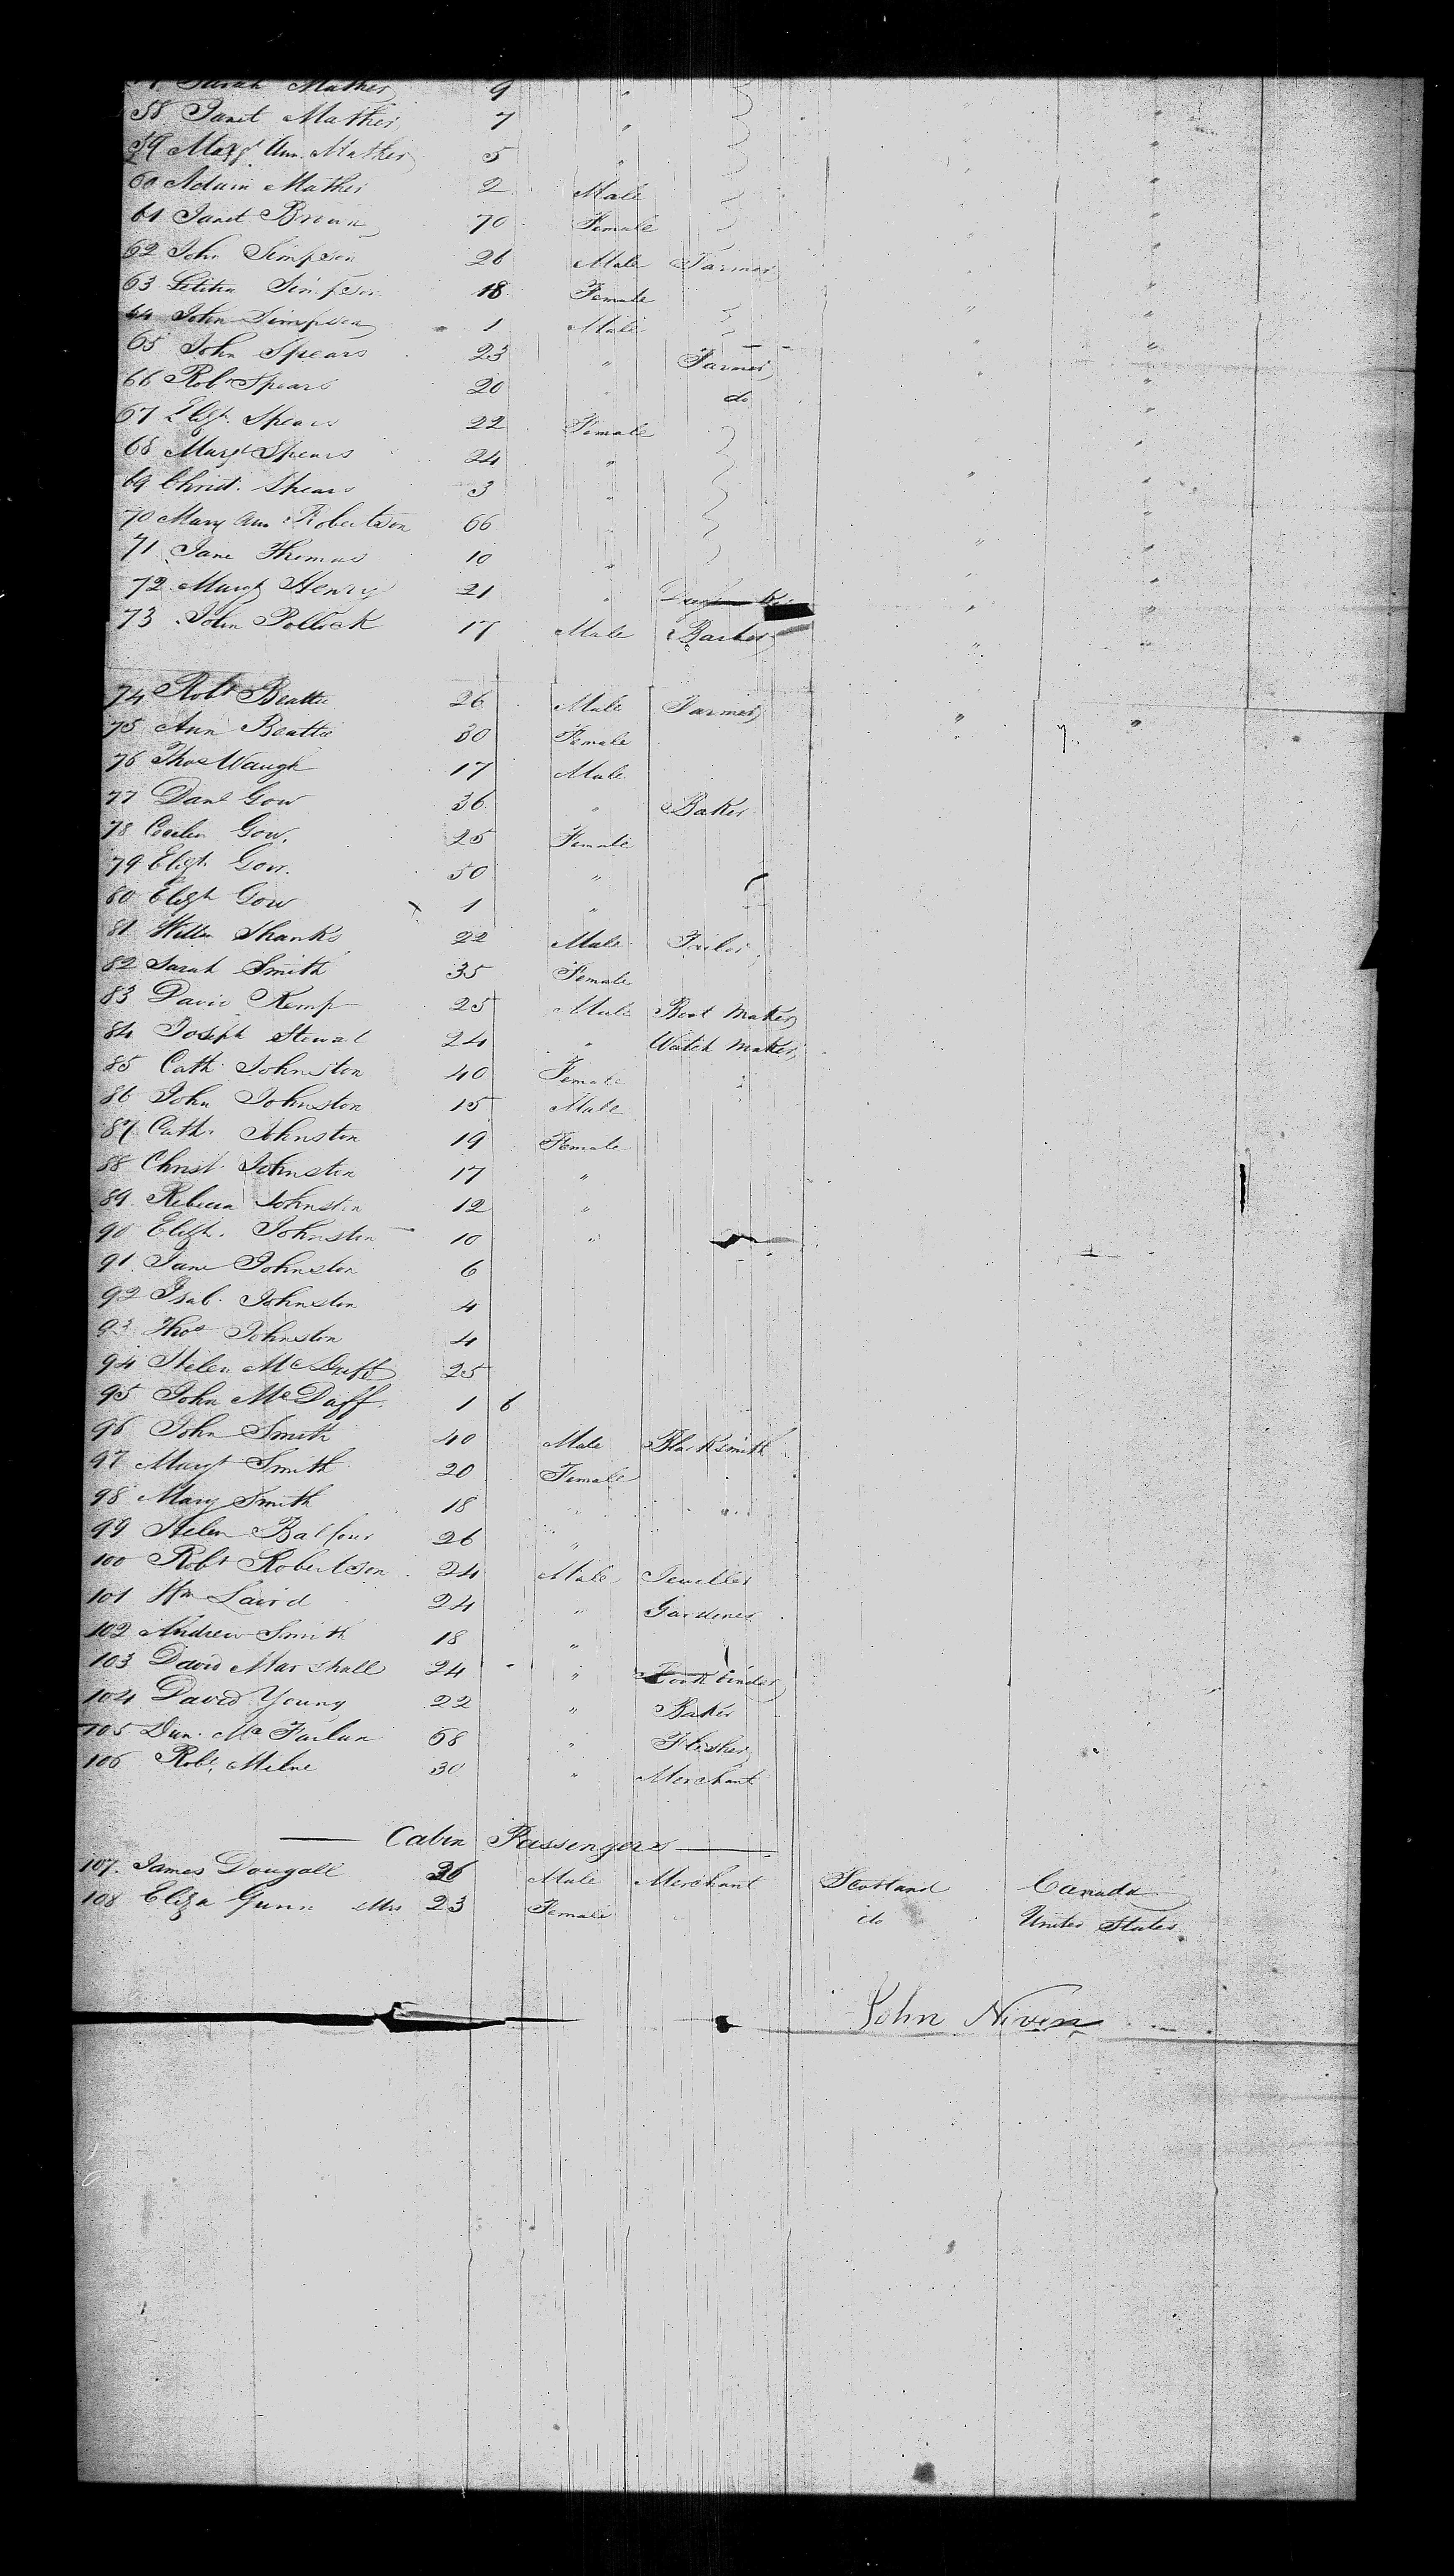 Sarah Mather 9 "
58 Janet Mather 7 "
59 Margt Ann Mather 5 "
60 Adam Mather 2 Male "
61 Janet Brown 70 Female " "
62 John Simpson 26 Male Farmer " "
63 Letitia Simpson 18 Female " "
64 John Simpson 1 Male " "
65 John Spears 23 " Farmer " "
66 Robt Spears 20 " do " "
67 Elizh. Spears 22 Female "
68 Margt Spears 24 " "
69 Christ. Spears 3 " " "
70 Mary Ann Robertson 66 " "
71 Jane Thomas 10 " " "
72 Margt Henry 21 " " "
73 John Pollock 17 Male " "
74 Robt Beattie 26 Male Farmer " "
75 Ann Beattie 30 Female
76 Thos Waugh 17 Male
77 Danl Gow 36 " Baker
78 Gow. 25 Female
79 Elizh. Gow. 50 "
80 Elizh Gow 1 "
81 Willm Shanks 22 Male Tailor
82 Sarah Smith 35 Female
83 David Kemp 25 Male Boot Maker
84 Joseph Stewart 24 " Watch Maker
85 Cath. Johnston 40 Female
86 John Johnston 15 Male
87 Cath. Johnston 19 Female
88 Christ. Johnston 17 "
89 Rebecca Johnston 12 "
90 Elizh. Johnston 10 "
91 Jane Johnston 6
92 Isab. Johnston 4
93 Thos Johnston 4
94 Helen McDuff 25
95 John McDuff 1 6
96 John Smith 40 Male Blacksmith
97 Margt Smith 20 Female
98 Mary Smith 18 "
99 Helen Balfour 26 "
100 Robt Robertson 24 Male Jeweller
101 Wm Laird 24 " Gardener
102 Andrew Smith 18 "
103 David Marshall 24 " Bookbinder
104 David Young 22 " Baker
105 Dun. McFarlan 68 " Flesher
106 Robt. Milne 30 " Merchant
Cabin Passengers
107. James Dougall 36 Male Merchant Scotland Canada
108 Eliza Gunn Mrs 23 Female do United States
John Niven